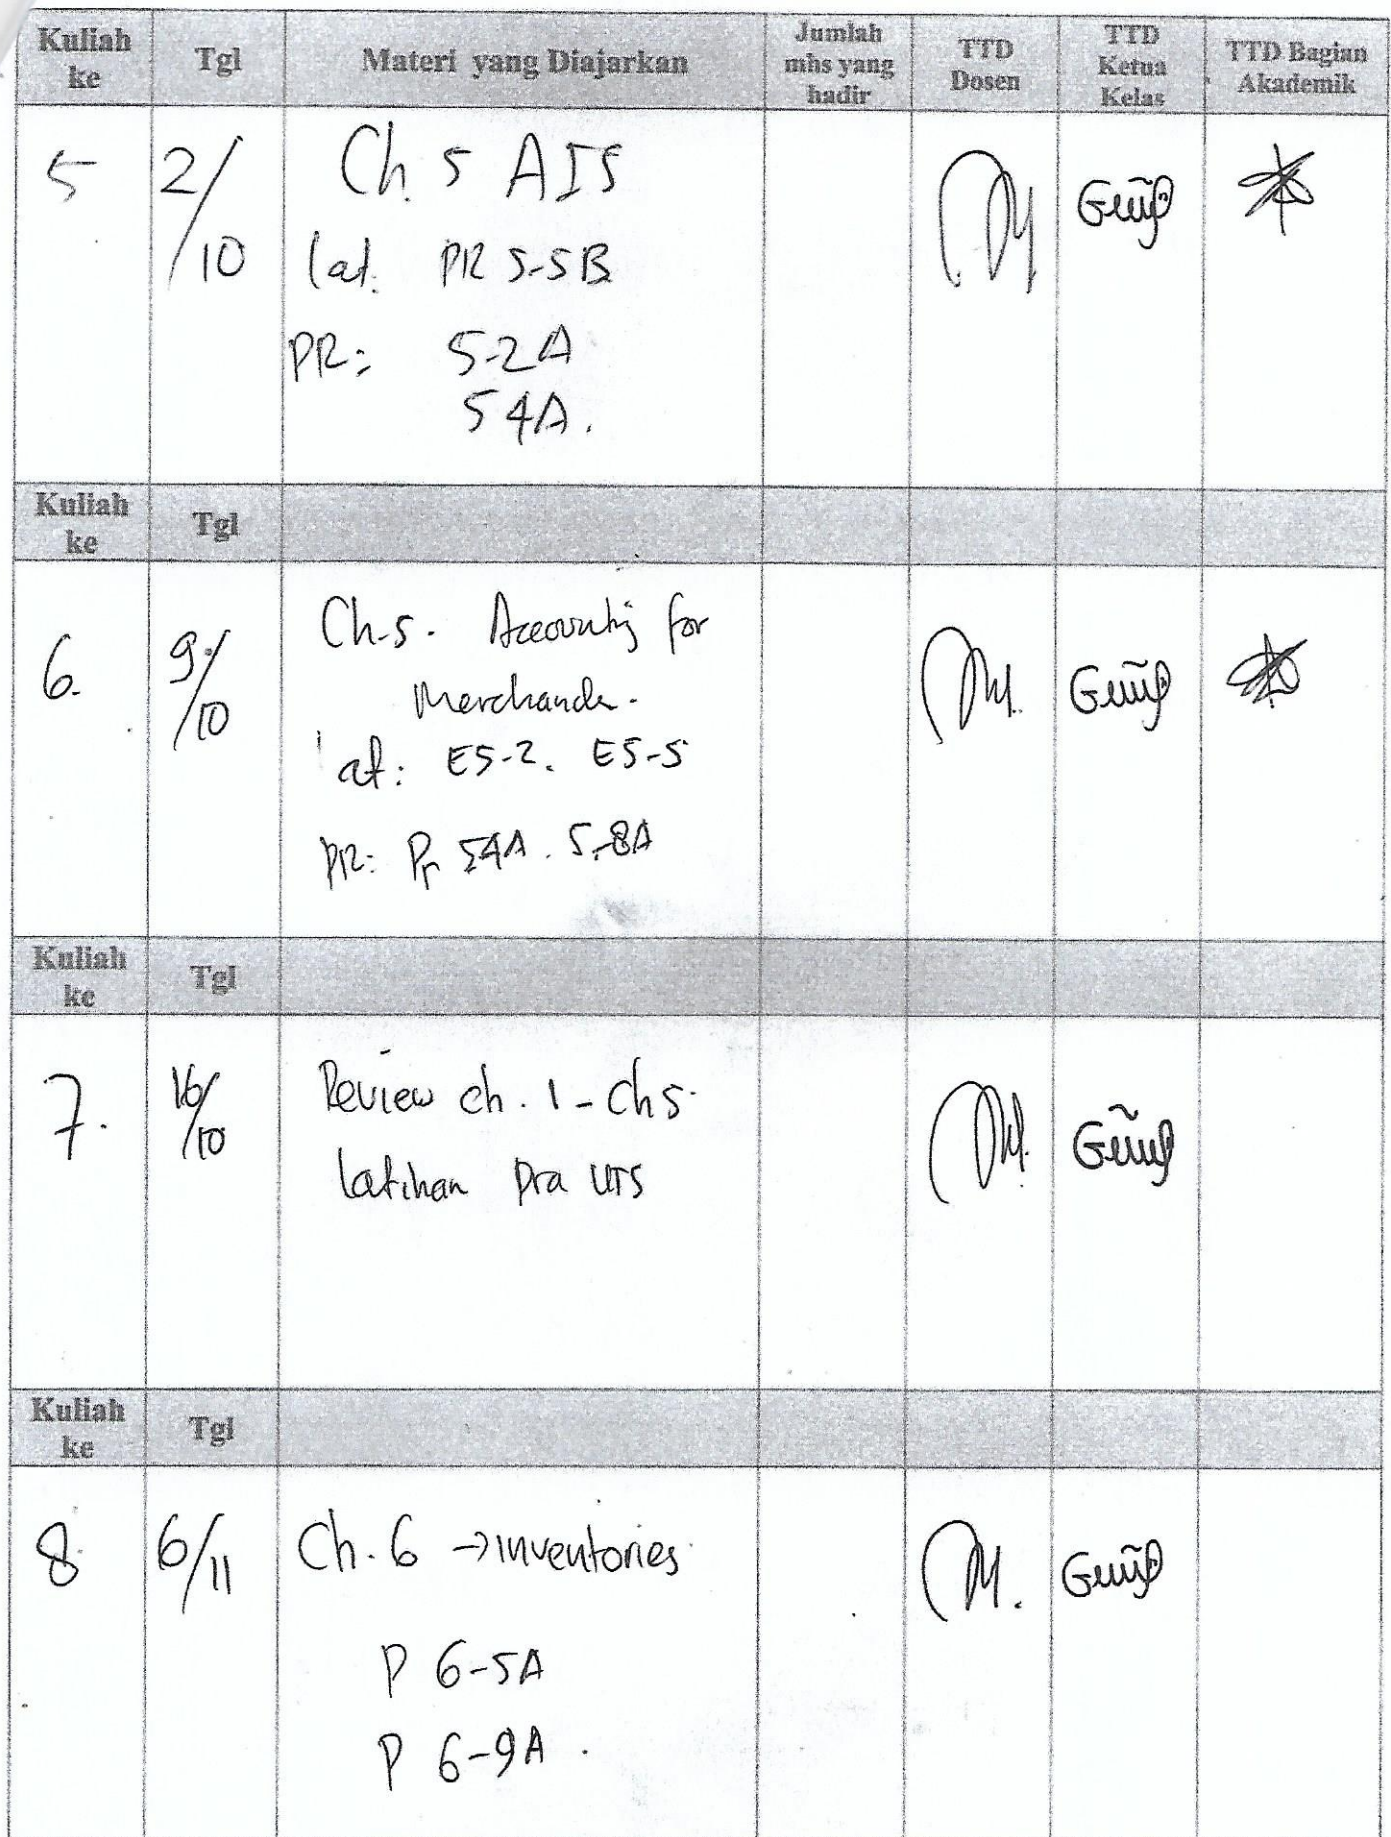 Kuliah ke Tgl Materi yang Diajarkan Jumlah mhs yang hadir TTD Dosen TTD Ketua Kelas TTD Bagian Akademik
5 2/10 Ch. 5 AIS
lat. PR 5-5B
PR: 5-2A
5 4A.
Kuliah ke Tgl
6. 9/10 Ch-5. Accounting for
Merchande.
lat: E5-2. E5-5
PR: Pr 54A. 5-8A
Kuliah ke Tgl
7. 16/10 Review ch. 1 - Ch 5.
latihan pra UTS
Kuliah ke Tgl
8 6/11 Ch. 6 → inventories
P 6-5A
P 6-9A.